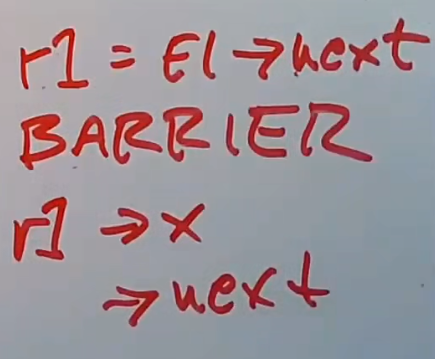 r1 = E1 → next
BARRIER
r1 → x
→ next